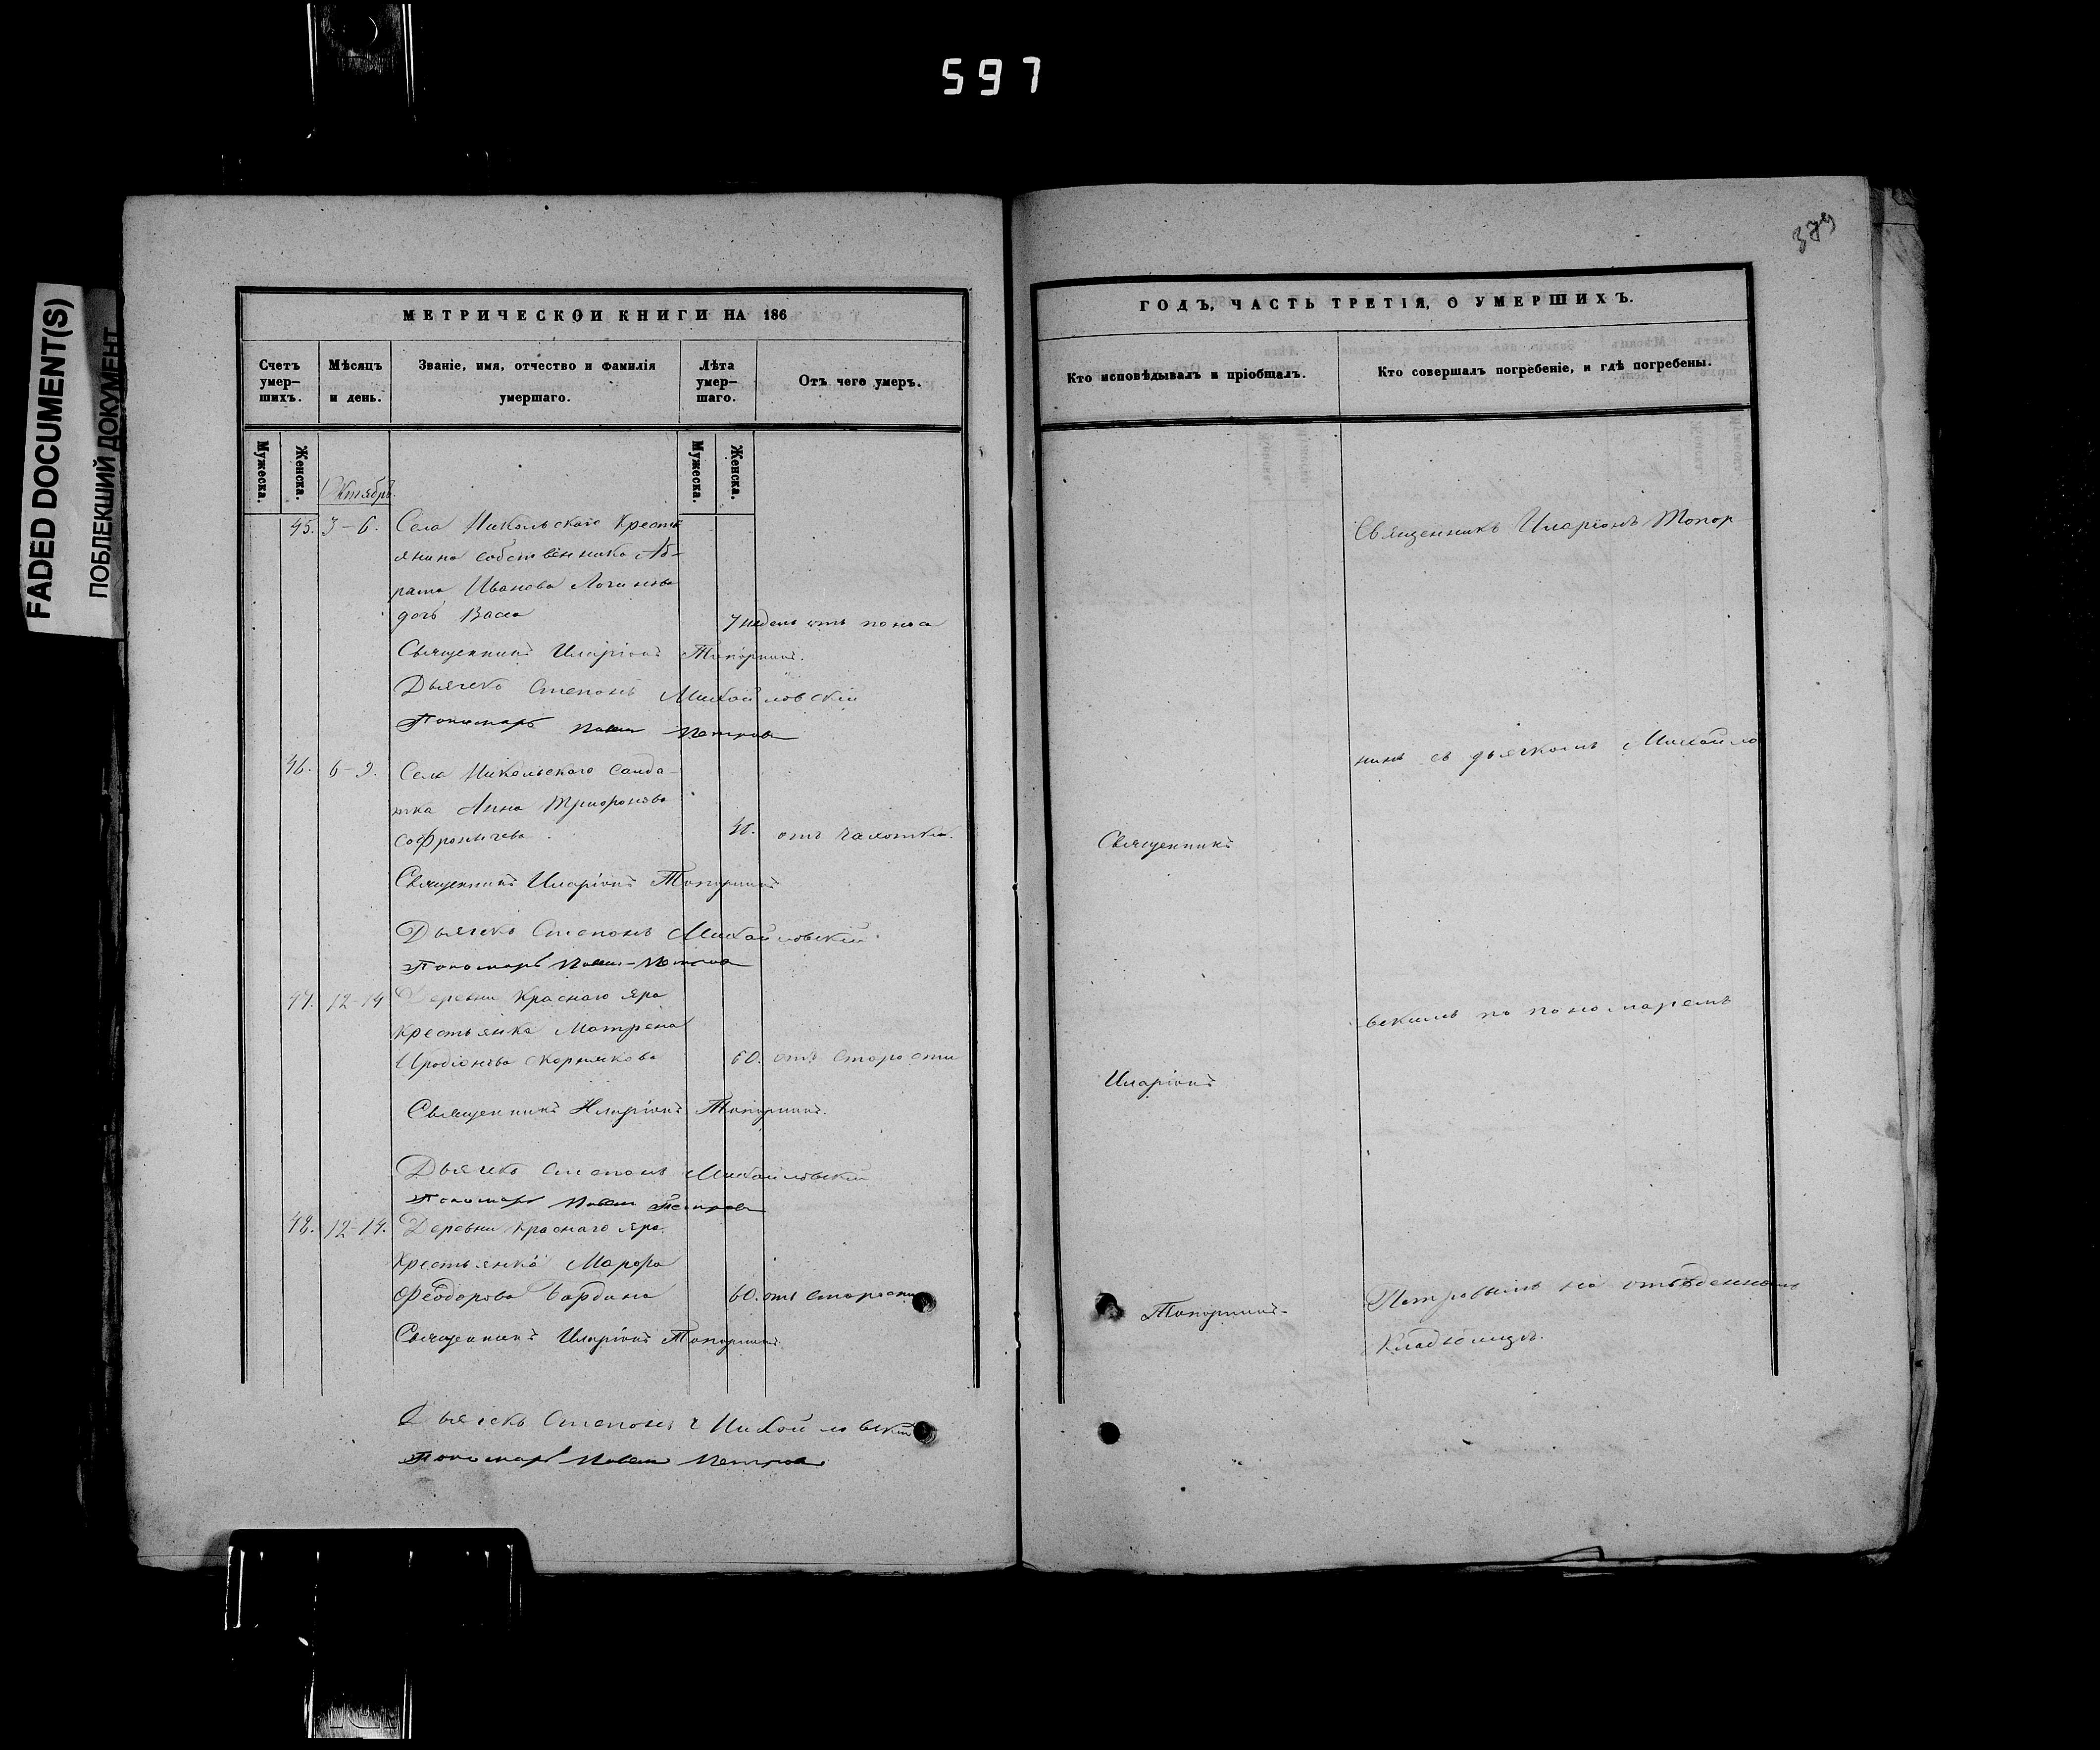 597
379
FADED DOCUMENT(S)
ПОБЛЕКШИЙ ДОКУМЕНТ
МЕТРИЧЕСКОЙ КНИГИ НА 186
Счетъ умер-шихъ.
Мѣсяцъ и день.
Званіе, имя, отчество и фамилія умершаго.
Лѣта умер-шаго.
Отъ чего умеръ.
Мужеска.
Женска.
Мужеска.
Женска.
Октябрь.
45. 3-6. Села Никольскаго Кресть
янина собственника Аб-
рама Иванова Логинова
дочь Васса 7 недель отъ поноса
Священникъ Иларіонъ Топорнинъ.
Дьячекъ Степанъ Михайловскій
Пономарь Павел Петров
46. 6-9. Села Никольскаго Салда-
тка Анна Трифонова
Софронычева. отъ чахотки.
Священникъ Иларіонъ Топорнинъ
Дьячекъ Степанъ Михайловскій
Пономарь Павел Петров
47. 12-14 Деревни Краснаго Яра
Крестьянка Матрена
Иродіонова Корнякова 60. отъ старости
Священникъ Иларіонъ Топорнинъ.
Дьячекъ Степанъ Михайловскій
Пономарь Павел Петров
48. 12-14. Деревни Краснаго Яра
Крестьянка Марфа
Феодорова 60. отъ старости
Священникъ Иларіонъ Топорнинъ
Дьячекъ Степанъ Михайловскій
Пономарь Павел Петров
ГОДЪ, ЧАСТЬ ТРЕТІЯ, О УМЕРШИХЪ.
Кто исповѣдывалъ и пріобщалъ.
Кто совершалъ погребеніе, и гдѣ погребены.
Священникъ
Иларіонъ
Топорнинъ
Священникъ Иларіонъ Топор
нинъ съ дьячкомъ Михайло
вскимъ пономаремъ
Петровымъ на отведенномъ
Кладбищѣ.